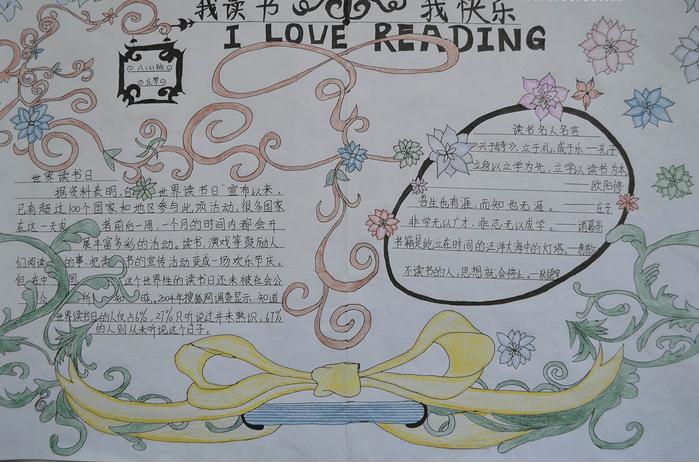 我读书 我快乐
I LOVE READING
八(3)班
世界读书日
据资料表明,自“世界读书日”宣布以来,
已有超过100个国家和地区参与此项活动,很多国家
在这一天或者前后一周,一个月的时间内都会开
展丰富多彩的活动。读书,演戏等鼓励人
们阅读的事,把读书的宣传活动变成一场欢乐节庆。
但在中国,这个世界性的读书日还未被社会公
众所知晓,2004年搜狐网调查显示,知道
世界读书日的人仅占6%,27%只听说过并未熟识,67%
的人则从未听说这个日子。
读书名人名言
兴于《诗》,立于礼,成于乐——孔子
立身以立学为先,立学以读书为本
——欧阳修
吾生也有涯,而知也无涯。——庄子
非学无以广才,非志无以成学。——诸葛亮
书籍是屹立在时间的汪洋大海中的灯塔。
不读书的人,思想就会停止。